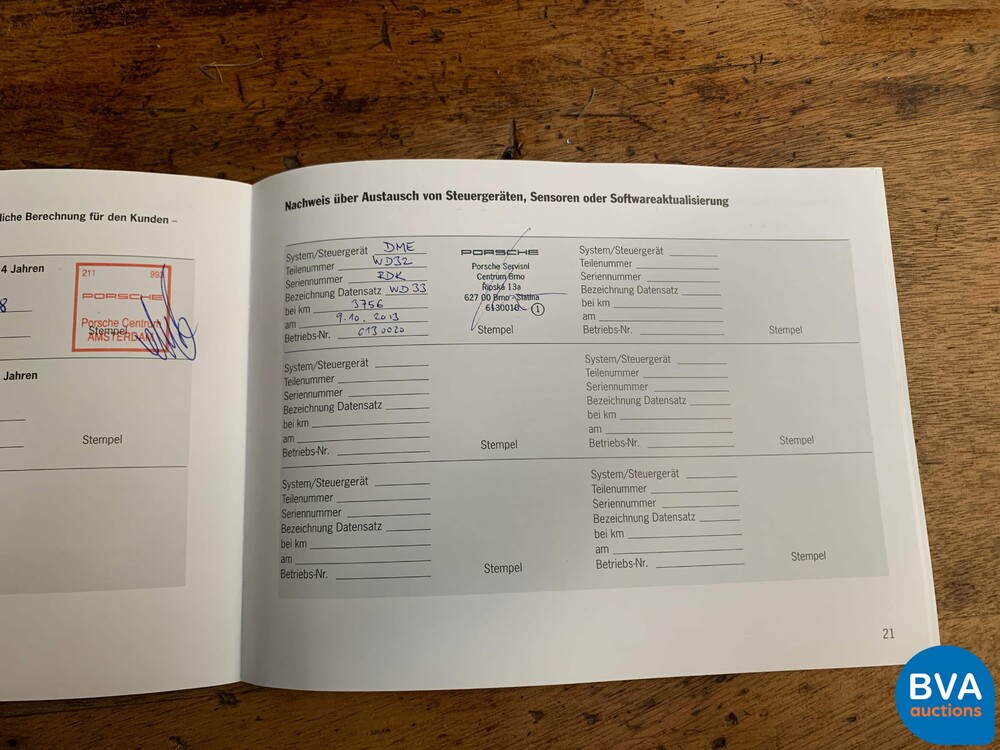 liche Berechnung für den Kunden –
4 Jahren
8
211 992
PORSCHE
Porsche Centrum
AMSTERDAM
Stempel
Jahren
Stempel
Nachweis über Austausch von Steuergeräten, Sensoren oder Softwareaktualisierung
System/Steuergerät DME
Teilenummer WD32
Seriennummer RDK
Bezeichnung Datensatz WD33
bei km 3756
am 9.10.2013
Betriebs-Nr. 6130020
PORSCHE
Porsche Servisní
Centrum Brno
Řipská 13a
627 00 Brno-Slatina
613001
1
Stempel
System/Steuergerät
Teilenummer
Seriennummer
Bezeichnung Datensatz
bei km
am
Betriebs-Nr. Stempel
System/Steuergerät
Teilenummer
Seriennummer
Bezeichnung Datensatz
bei km
am
Betriebs-Nr. Stempel
System/Steuergerät
Teilenummer
Seriennummer
Bezeichnung Datensatz
bei km
am
Betriebs-Nr. Stempel
System/Steuergerät
Teilenummer
Seriennummer
Bezeichnung Datensatz
bei km
am
Betriebs-Nr. Stempel
System/Steuergerät
Teilenummer
Seriennummer
Bezeichnung Datensatz
bei km
am
Betriebs-Nr. Stempel
21
BVA
auctions